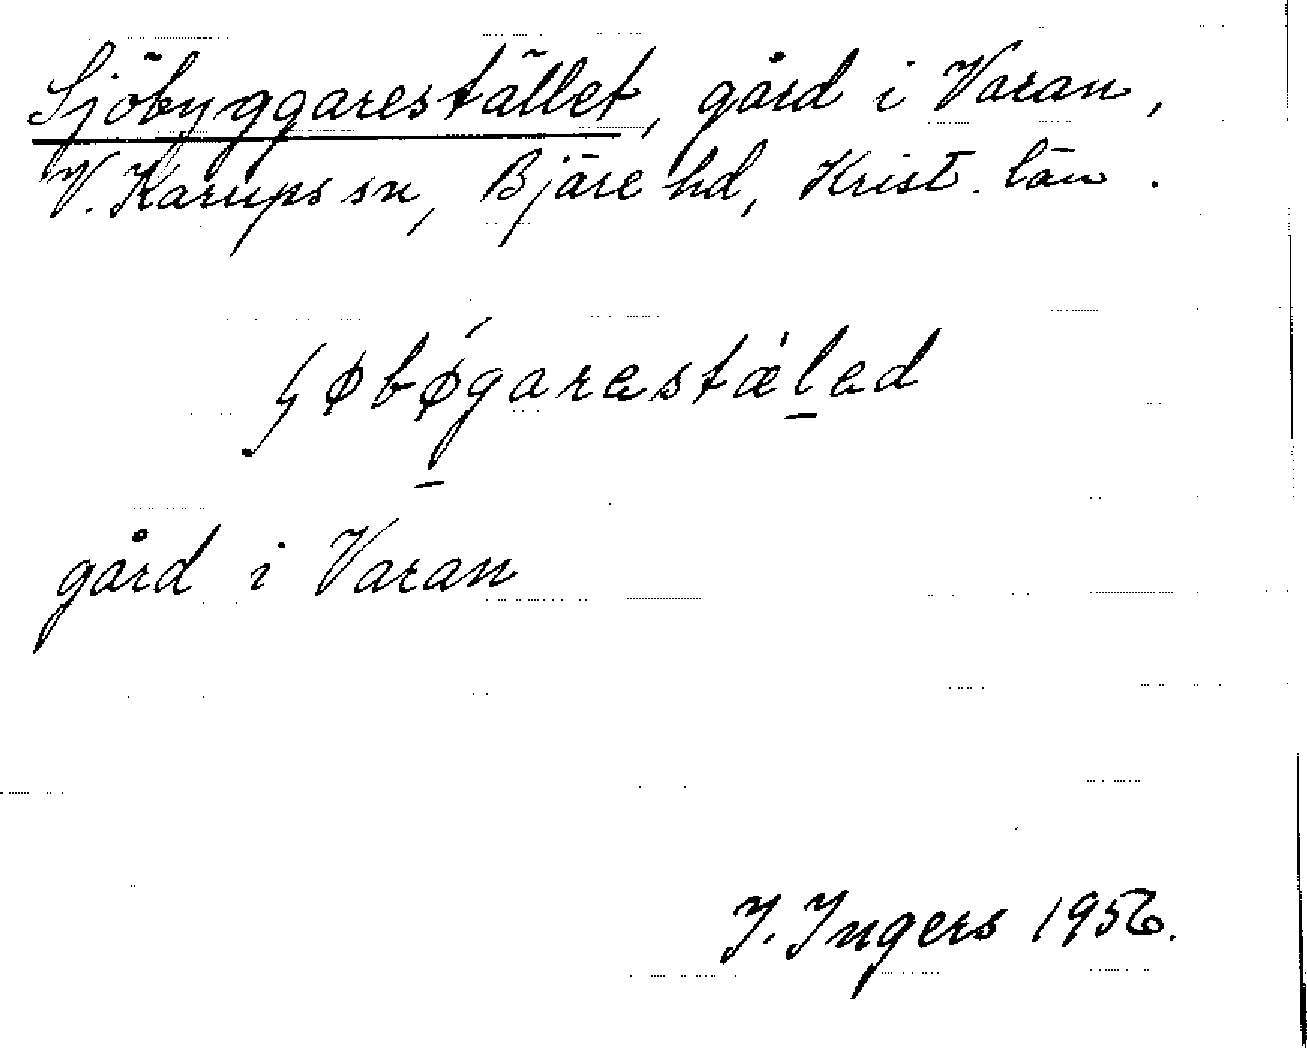 Sjöbyggarestället, gård i Varan,
V. Karups sn, Bjäre hd, Krist. län.
ʃøbǿgarestæ̍led
gård i Varan
I. Ingers 1956.